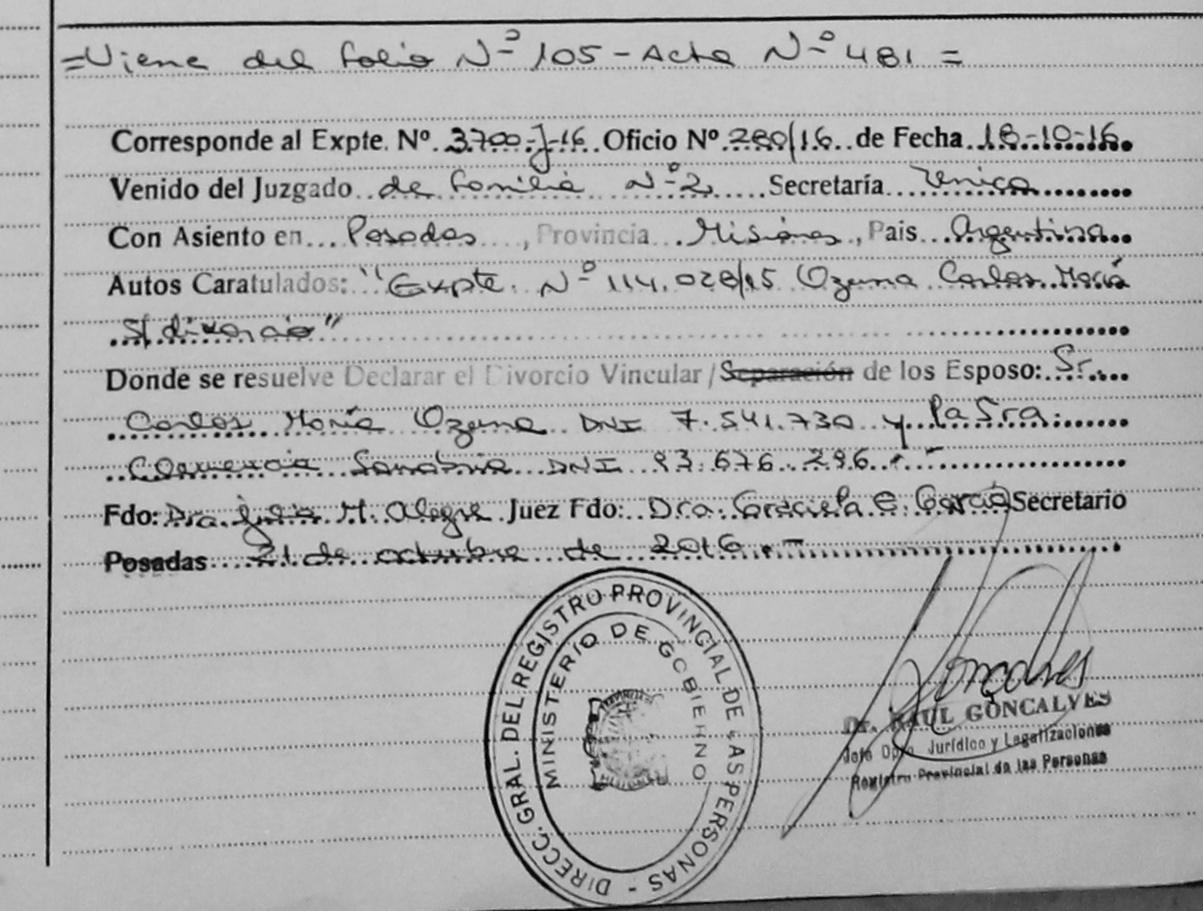 =Viene del folio Nº 105 - Acta Nº 481=
Corresponde al Expte. Nº 3700-J-16 Oficio Nº 280/16 de Fecha 18-10-16
Venido del Juzgado de Familia Nº 2 Secretaría Unica
Con Asiento en Posadas, Provincia Misiones, Pais Argentina
Autos Caratulados: "Expte. Nº 114.028/15 Ozuna Carlos María
S/ divorcio"
Donde se resuelve Declarar el Divorcio Vincular / Separación de los Esposo: Sr.
Carlos María Ozuna DNI 7.541.730 y la Sra.
Sanabria DNI 93.676.296.-
Fdo: Dra. Julia M. Alegre Juez Fdo: Dra. Graciela C. García Secretario
Posadas 21 de octubre de 2016.-
DIRECC. GRAL. DEL REGISTRO PROVINCIAL DE LAS PERSONAS -
MINISTERIO DE GOBIERNO
Goncalves
Dr. RAUL GONCALVES
Jefe Dpto. Jurídico y Legalizaciones
Registro Provincial de las Personas